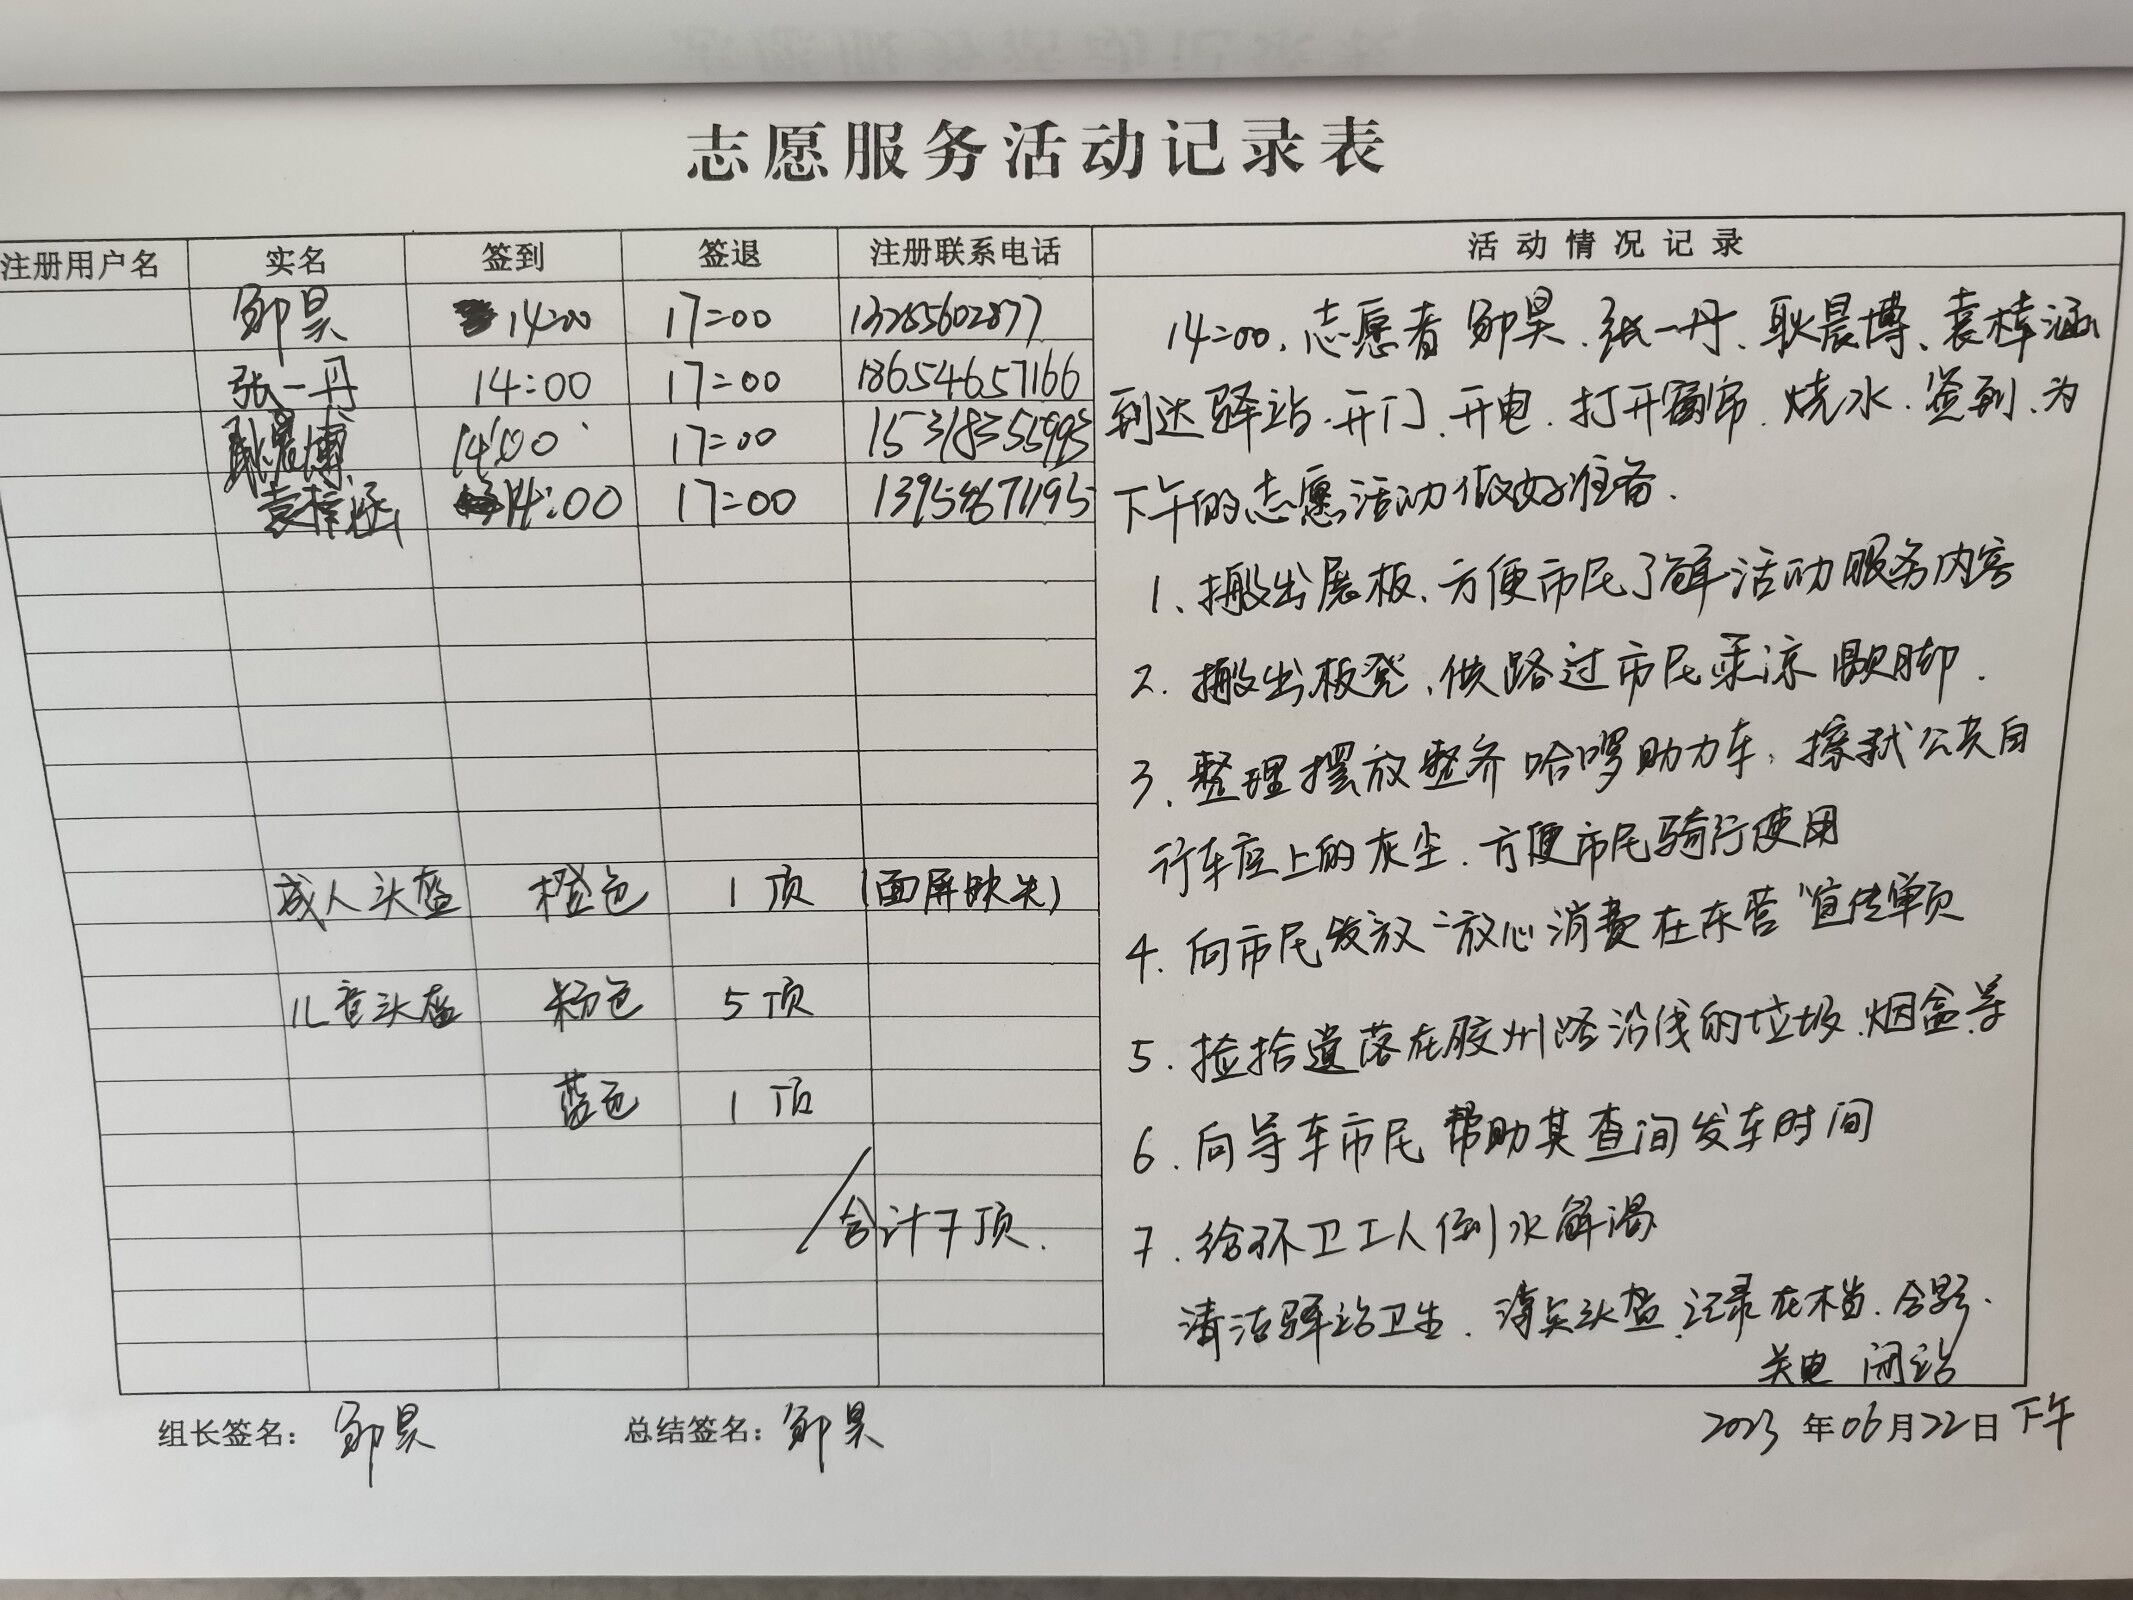 志愿服务活动记录表
注册用户名 实名 签到 签退 注册联系电话 活动情况记录
14:00 17:00 13285602877
张一丹 14:00 17:00 18654657166
耿晨博 14:00 17:00 15318355995
袁梓涵 14:00 17:00 13954671195
成人头盔 橙色 1顶 (面屏缺失)
儿童头盔 粉色 5顶
蓝色 1顶
合计7顶.
14:00.志愿者 昊.张一丹、耿晨博、袁梓涵
到达驿站.开门.开电.打开窗帘.烧水.签到.为
下午的志愿活动做好准备.
1、搬出展板、方便市民了解活动服务内容
2.搬出板凳、供路过市民乘凉歇脚.
3、整理摆放整齐哈啰助力车,擦拭公共自
行车座上的灰尘.方便市民骑行使用
4.向市民发放"放心消费在东营"宣传单页
5.捡拾遗落在胶州路沿线的垃圾.烟盒等
6.向等车市民帮助其查询发车时间
7.给环卫工人倒水解渴
清洁驿站卫生.清点头盔.记录在档.合影.
关电 闭站
组长签名: 总结签名:
2023年06月22日下午